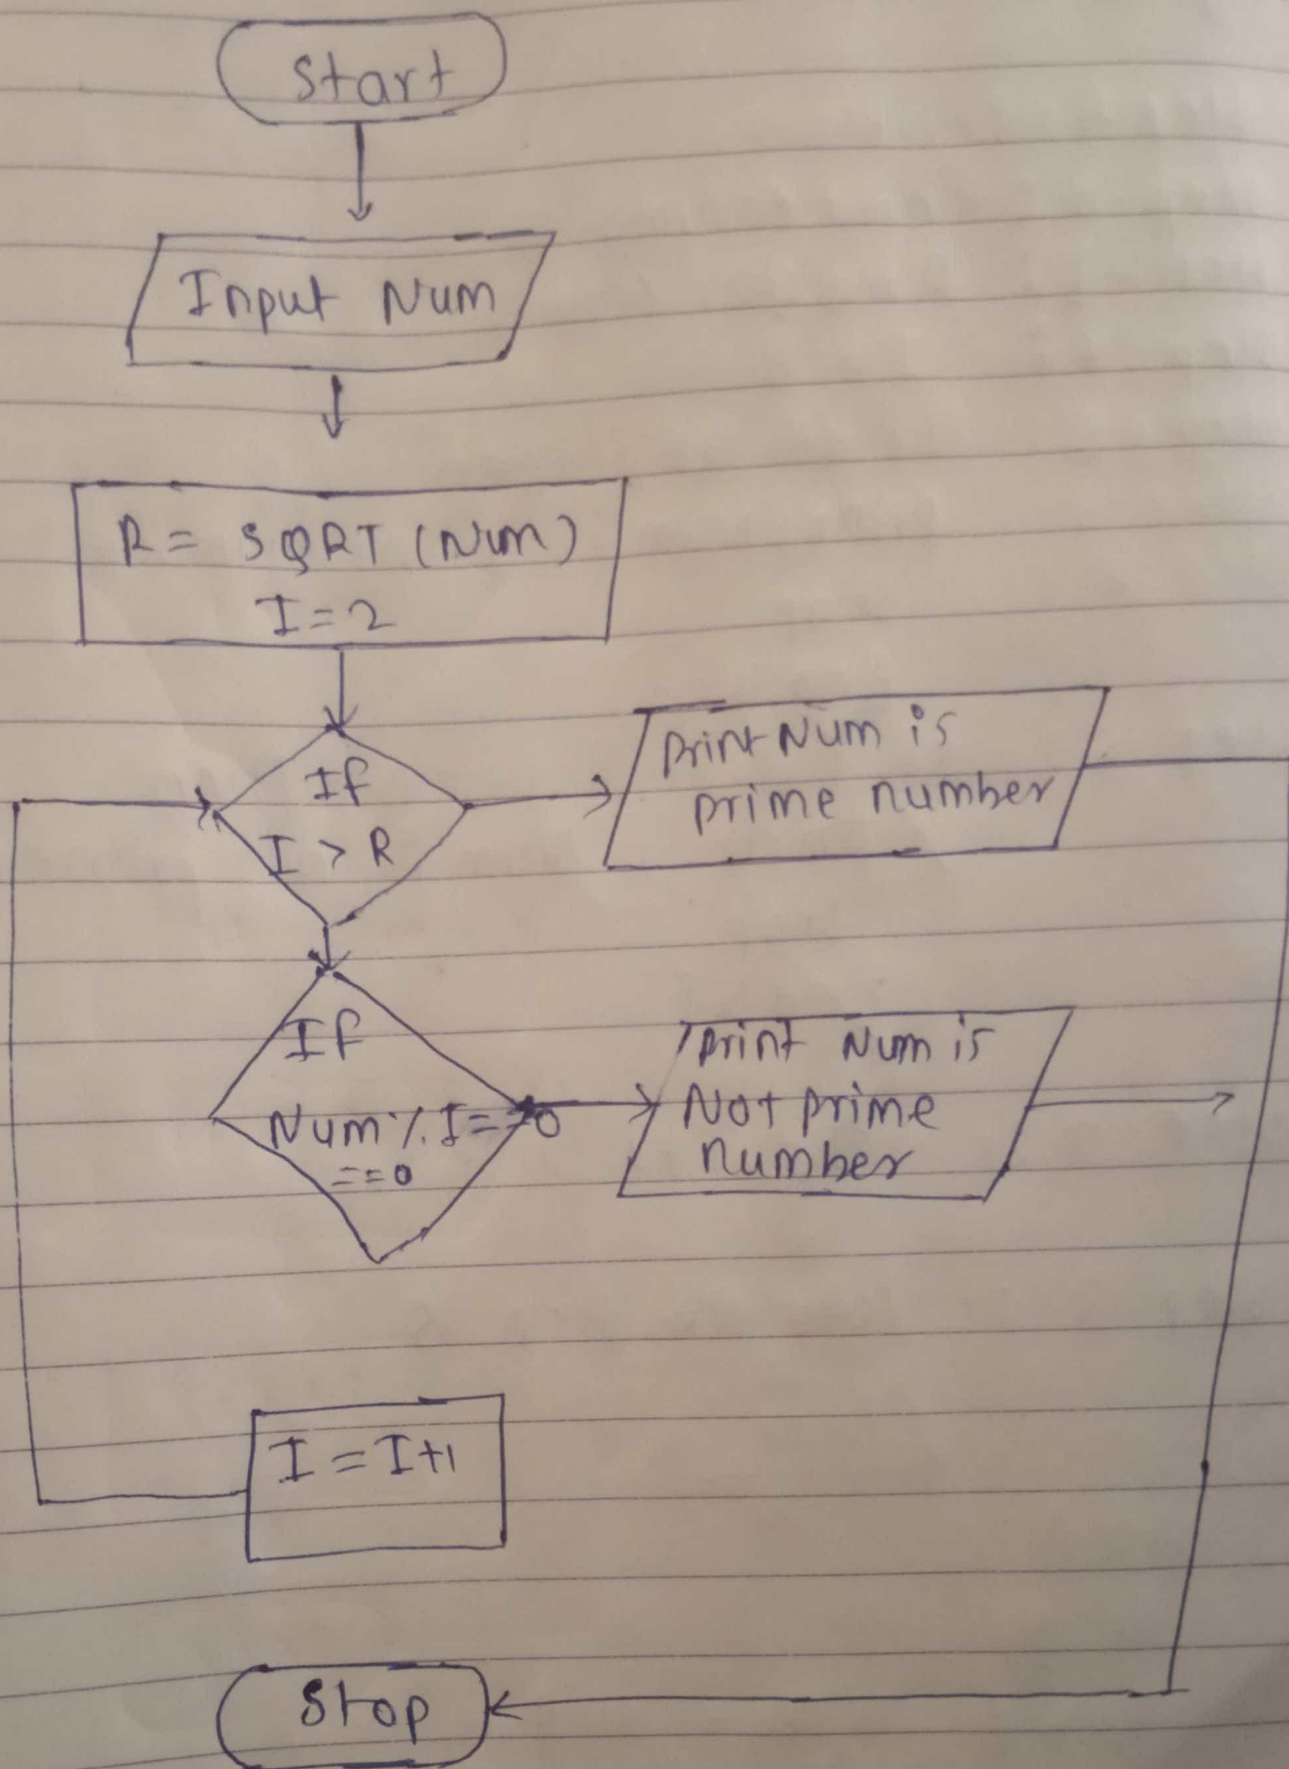 Start
Input Num
R = SQRT (Num)
I = 2
If
I > R
Print Num is
prime number
If
Num % I ==0
==0
print Num is
Not prime
number
I = I+1
Stop